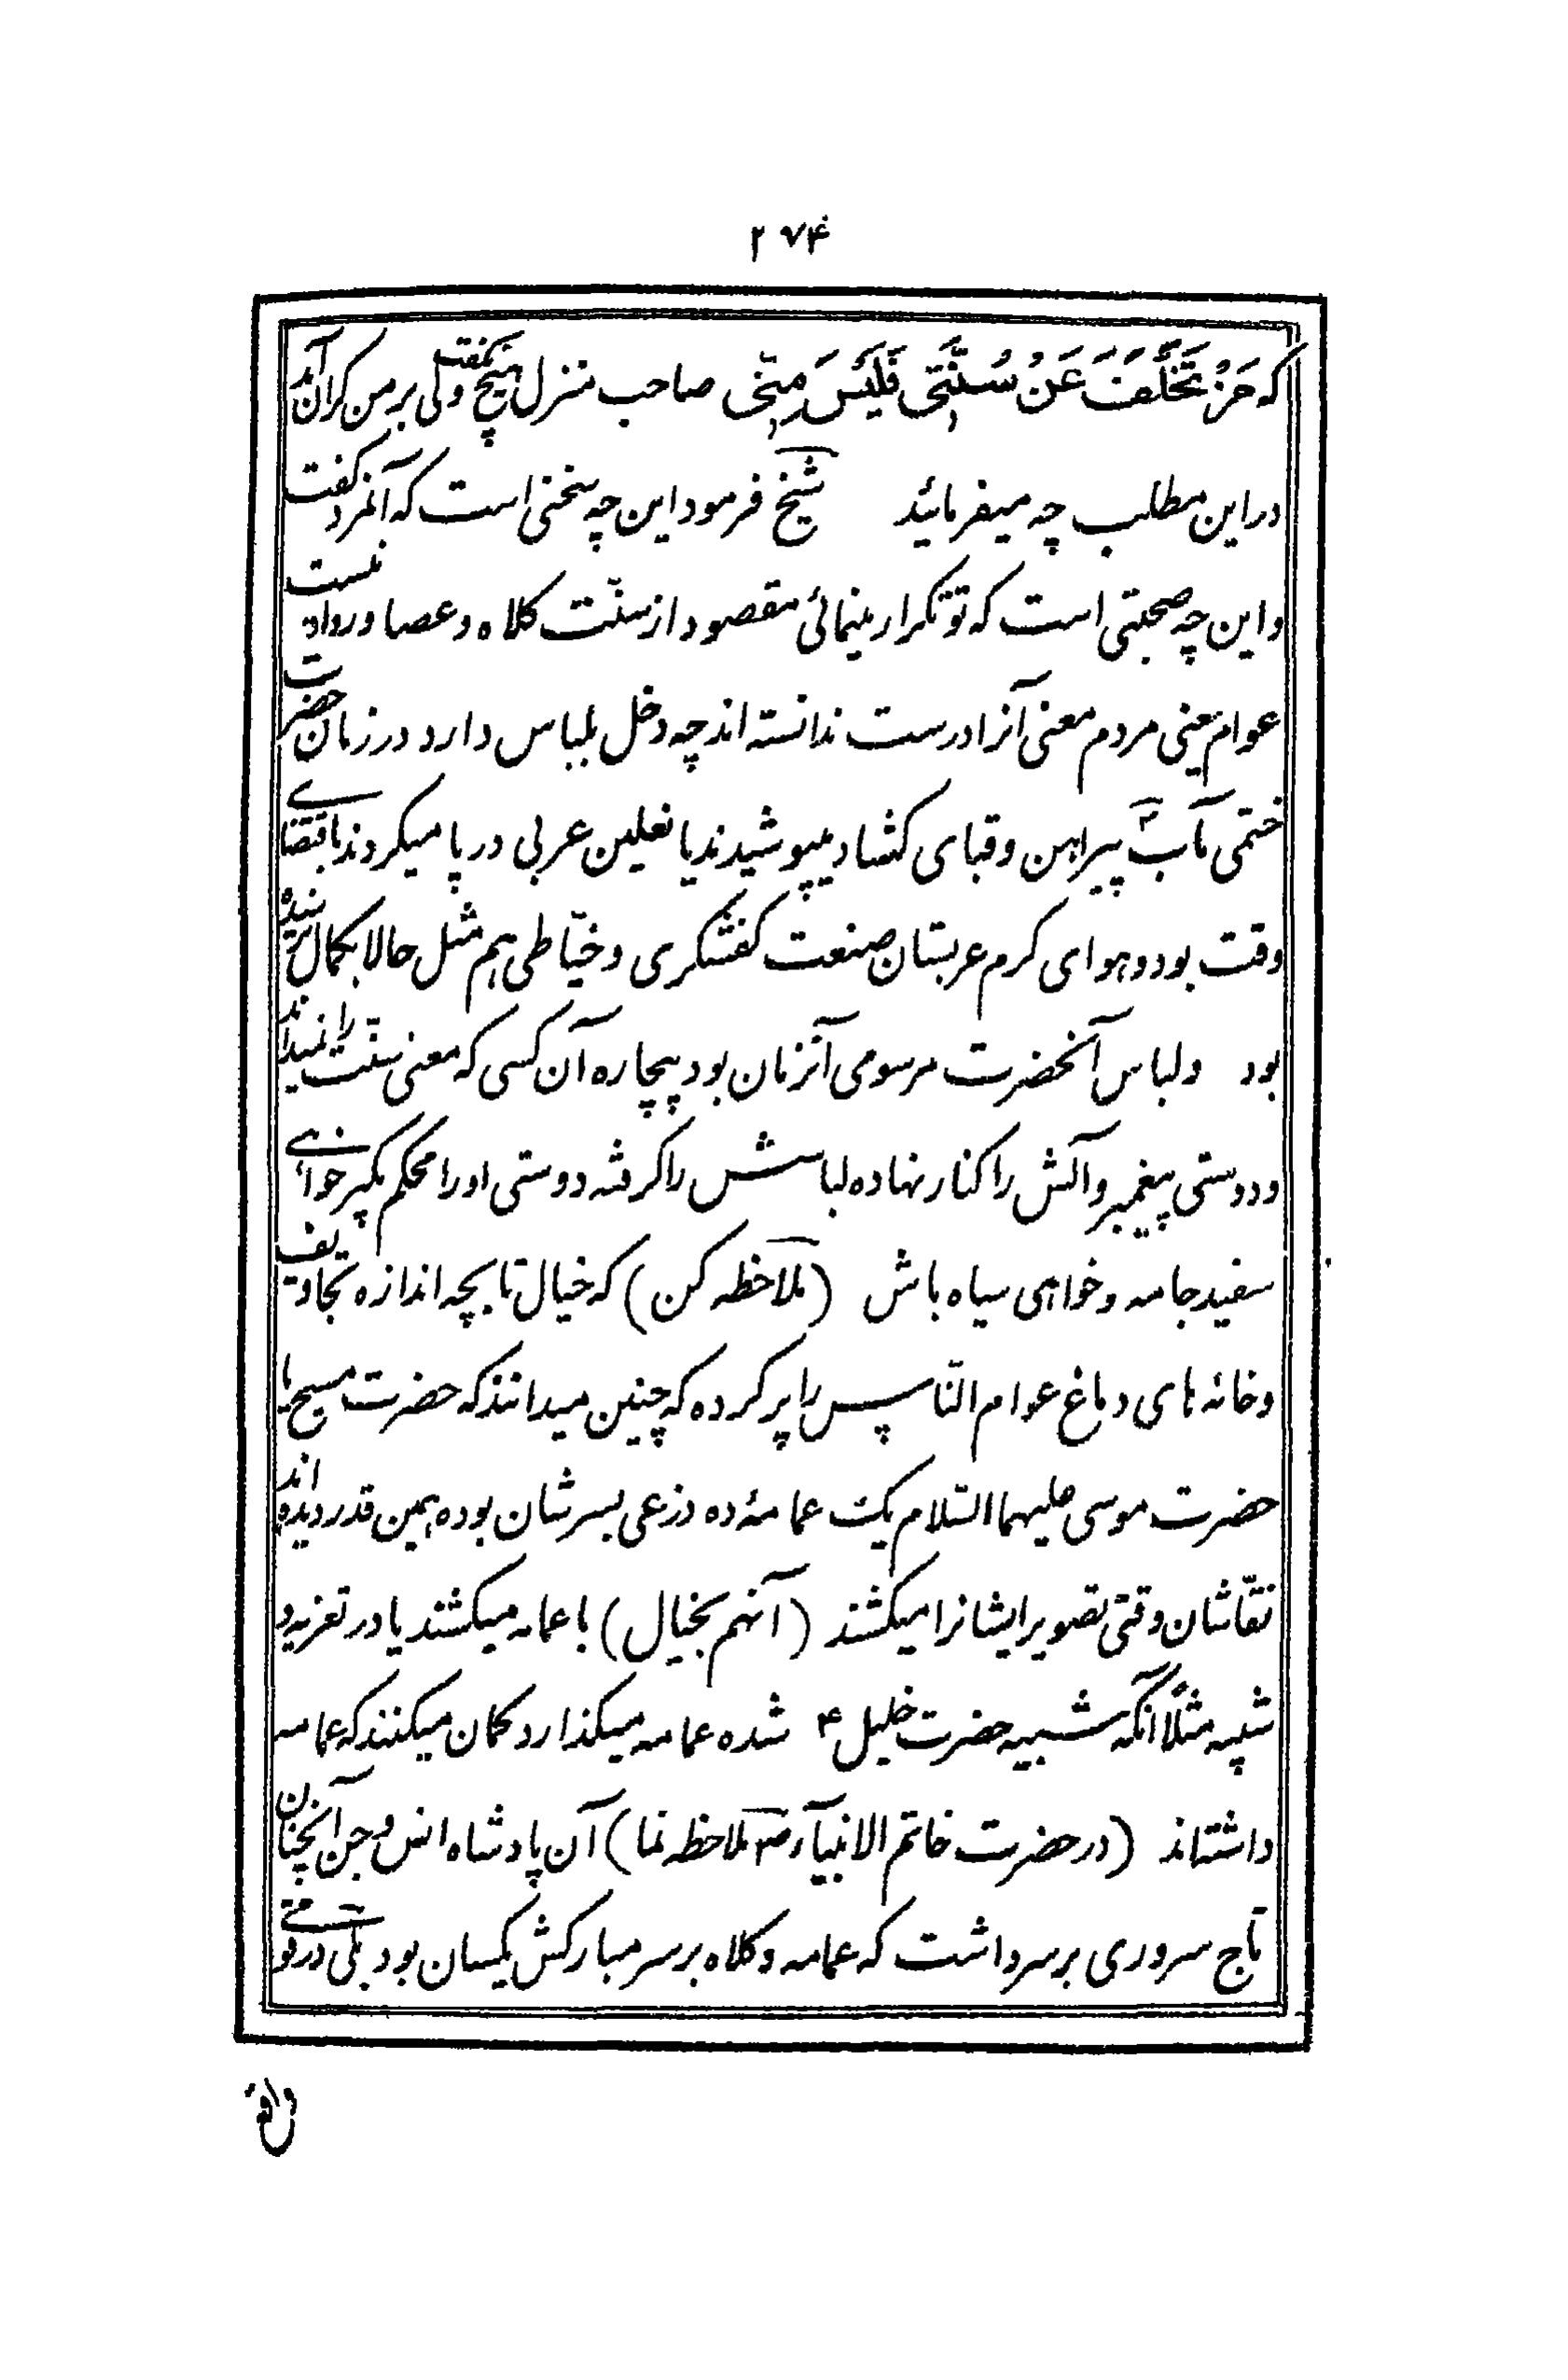 ۲۷۴
که مَنْ تَخَلَّفَ عَنْ سُنَّتِی فَلَیْسَ مِنّی صاحب منزل هیچ نگفت ولی بر من کران آمد
در این مطلب چه میفرمائید شیخ فرمود این چه سخنی است که آنمرد گفت
و این چه صحبتی است که تو تکرار مینمائی مقصود از سنّت کلاه و عصا و ردا نیست
عوام یعنی مردم معنی آنرا درست ندانسته اند چه دخل بلباس دارد در زمان حضرت
ختمی مآب ص پیراهن و قبای کشاد میپوشیدند یا نعلین عربی در پا میکردند باقتضای
وقت بود و هوای کرم عربستان صنعت کفشکری و خیّاطی هم مثل حالا بکمال نرسیده
بود ولباس آنحضرت مرسومی آنزمان بود بیچاره آن کسی که معنی سنّت را نمیداند
ودوستی پیغمبر و آلش را کنار نهاده لباسش را کرفته دوستی او را محکم بگیر خواهی
سفید جامه و خواهی سیاه باش (ملاحظه کن) که خیال تا بچه اندازه تجاویف
وخانه های دماغ عوام النّاس را پر کرده که چنین میدانند که حضرت مسیح یا
حضرت موسی علیهما السّلام یک عمامهٔ ده ذرعی بسرشان بوده همین قدر دیده اند
نقّاشان وقتی تصویر ایشانرا میکشند (آنهم بخیال) با عمامه میکشند یا در تعزیه و
شبیه مثلاً آنکه شبیه حضرت خلیل ع شده عمامه میکذارد کمان میکنند که عمامه
داشته‌اند (در حضرت خاتم الانبیآء ص ملاحظه نما) آن پادشاه انس و جن آنچنان
تاج سروری بر سر داشت که عمامه و کلاه بر سر مبارکش یکسان بود بلی در وقتی